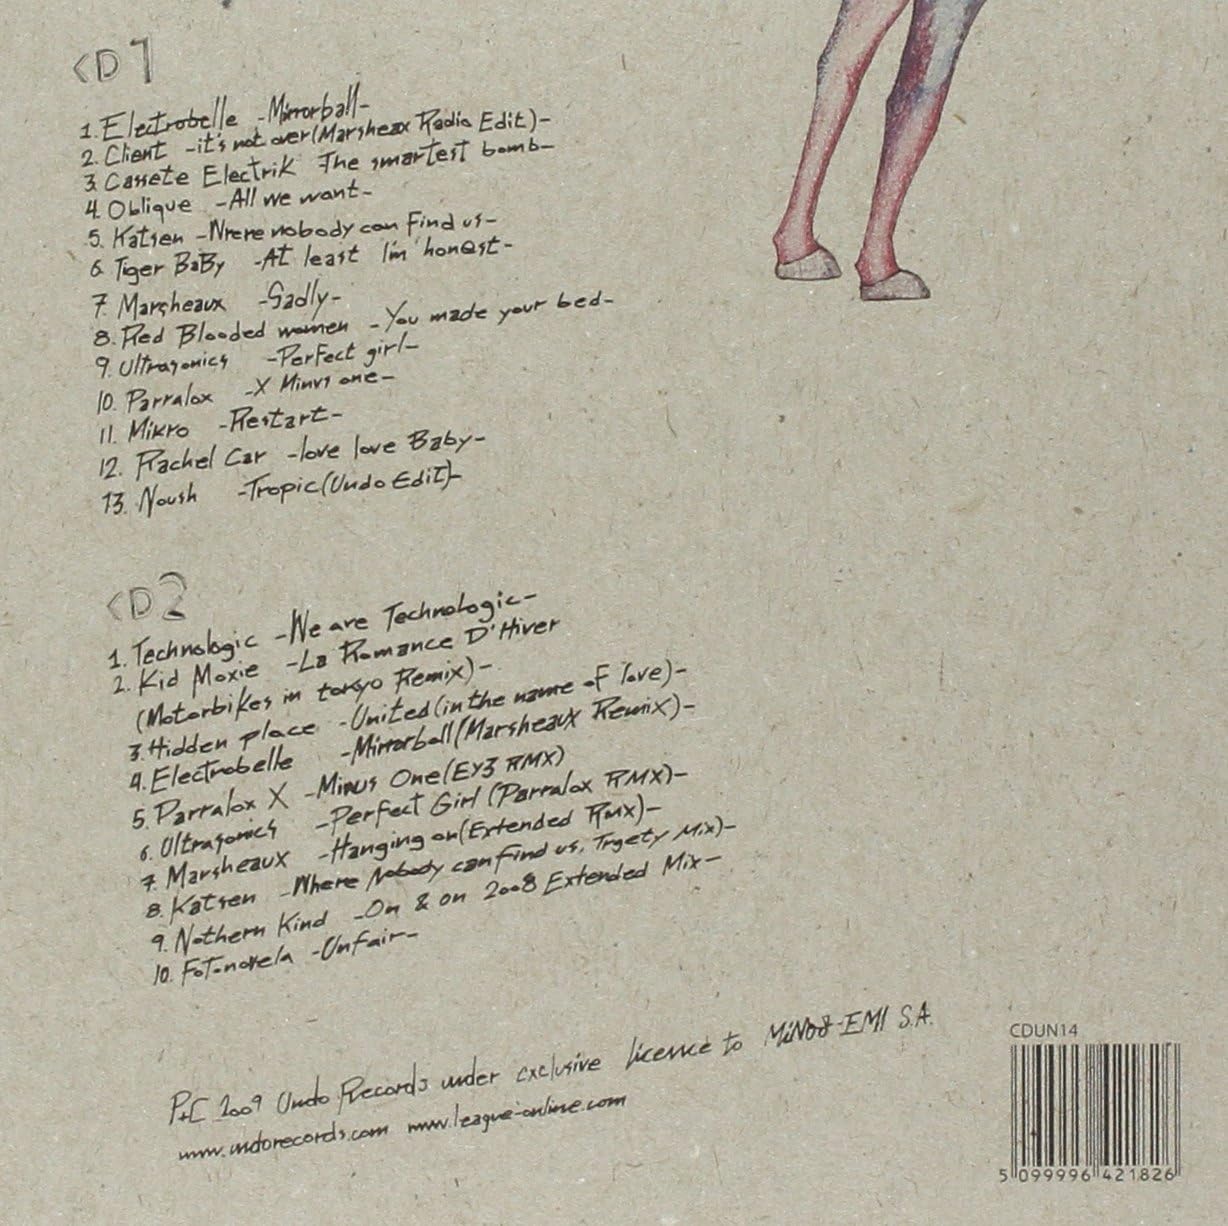 CD1
1. Electrobelle -Mirrorball-
2. Client -it's not over(Marsheax Radio Edit)-
3. Cassete Electrik The smartest bomb-
4. Oblique -All we want-
5. Katsen -Nrere nobody can find us-
6. Tiger BaBy -At least I'm honest-
7. Marsheaux -Sadly-
8. Red Blooded women -You made your bed-
9. Ultrasonics -Perfect girl-
10. Parralox -X Minus one-
11. Mikro -Restart-
12. Rachel Car -love love Baby-
13. Noush -Tropic(Undo Edit)-
CD2
1. Technologic -We are Technologic-
2. Kid Moxie -La Romance D'Hiver
(Motorbikes in tokyo Remix)-
3. Hidden place -United(in the name of love)-
4. Electrobelle -Mirrorball(Marsheaux Remix)-
5. Parralox X -Minus One(EY3 RMX)
6. Ultrasonics -Perfect Girl (Parralox RMX)-
7. Marsheaux -Hanging on(Extended Rmx)-
8. Katsen -Where Nobody can find us, Trgety Mix)-
9. Nothern Kind -On & on 2008 Extended Mix-
10. Fotonovela -Unfair-
P+C 2009 Undo Records under exclusive licence to MiNOS-EMI S.A.
www.undorecords.com www.league-online.com
CDUN14
5 099996 421826